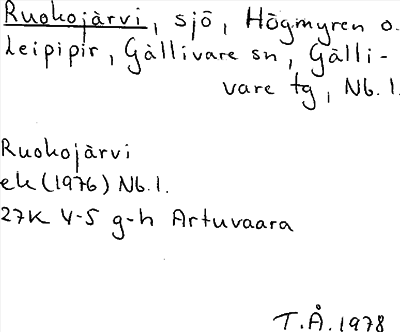 Ruokojärvi, sjö, Högmyren o.
Leipipir, Gällivare sn, Gälli-
vare tg, Nb. l.
Ruokojärvi
ek (1976) Nb. l.
27K 4-5 g-h Artuvaara
T.Å. 1978